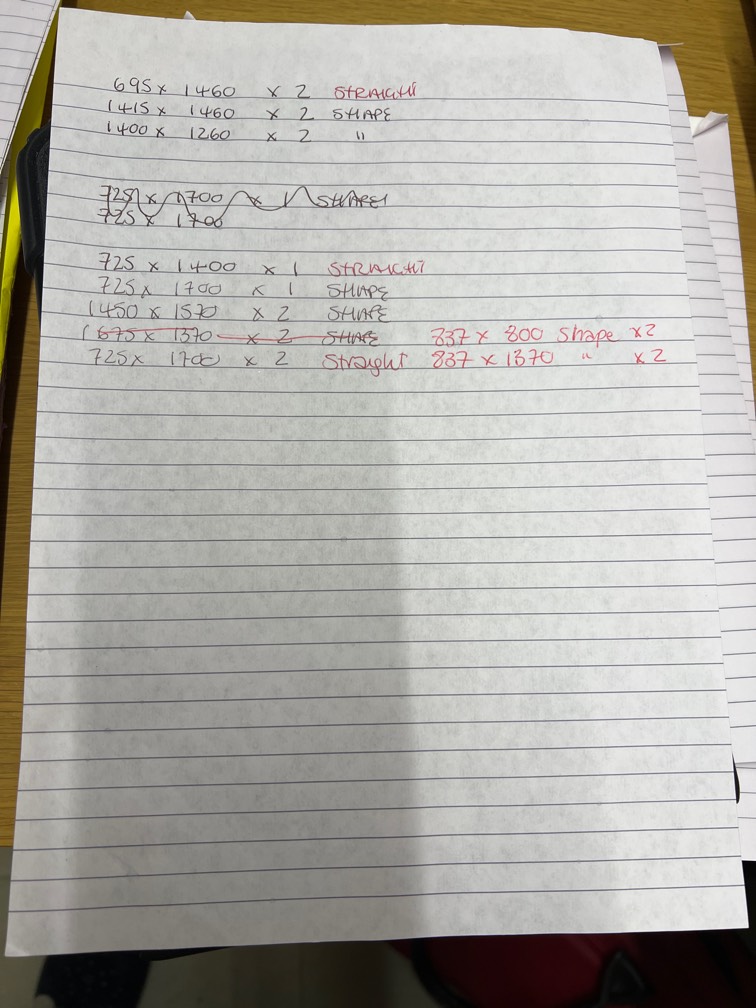 695 x 1460 x 2 STRAIGHT
1415 x 1460 x 2 SHAPE
1400 x 1260 x 2 "
725 x 1700 x 1 SHAPE
725 x 1700
725 x 1400 x 1 STRAIGHT
725 x 1700 x 1 SHAPE
1450 x 1570 x 2 SHAPE
1675 x 1370 x 2 SHAPE 837 x 800 Shape x2
725 x 1700 x 2 Straight 837 x 1370 " x2